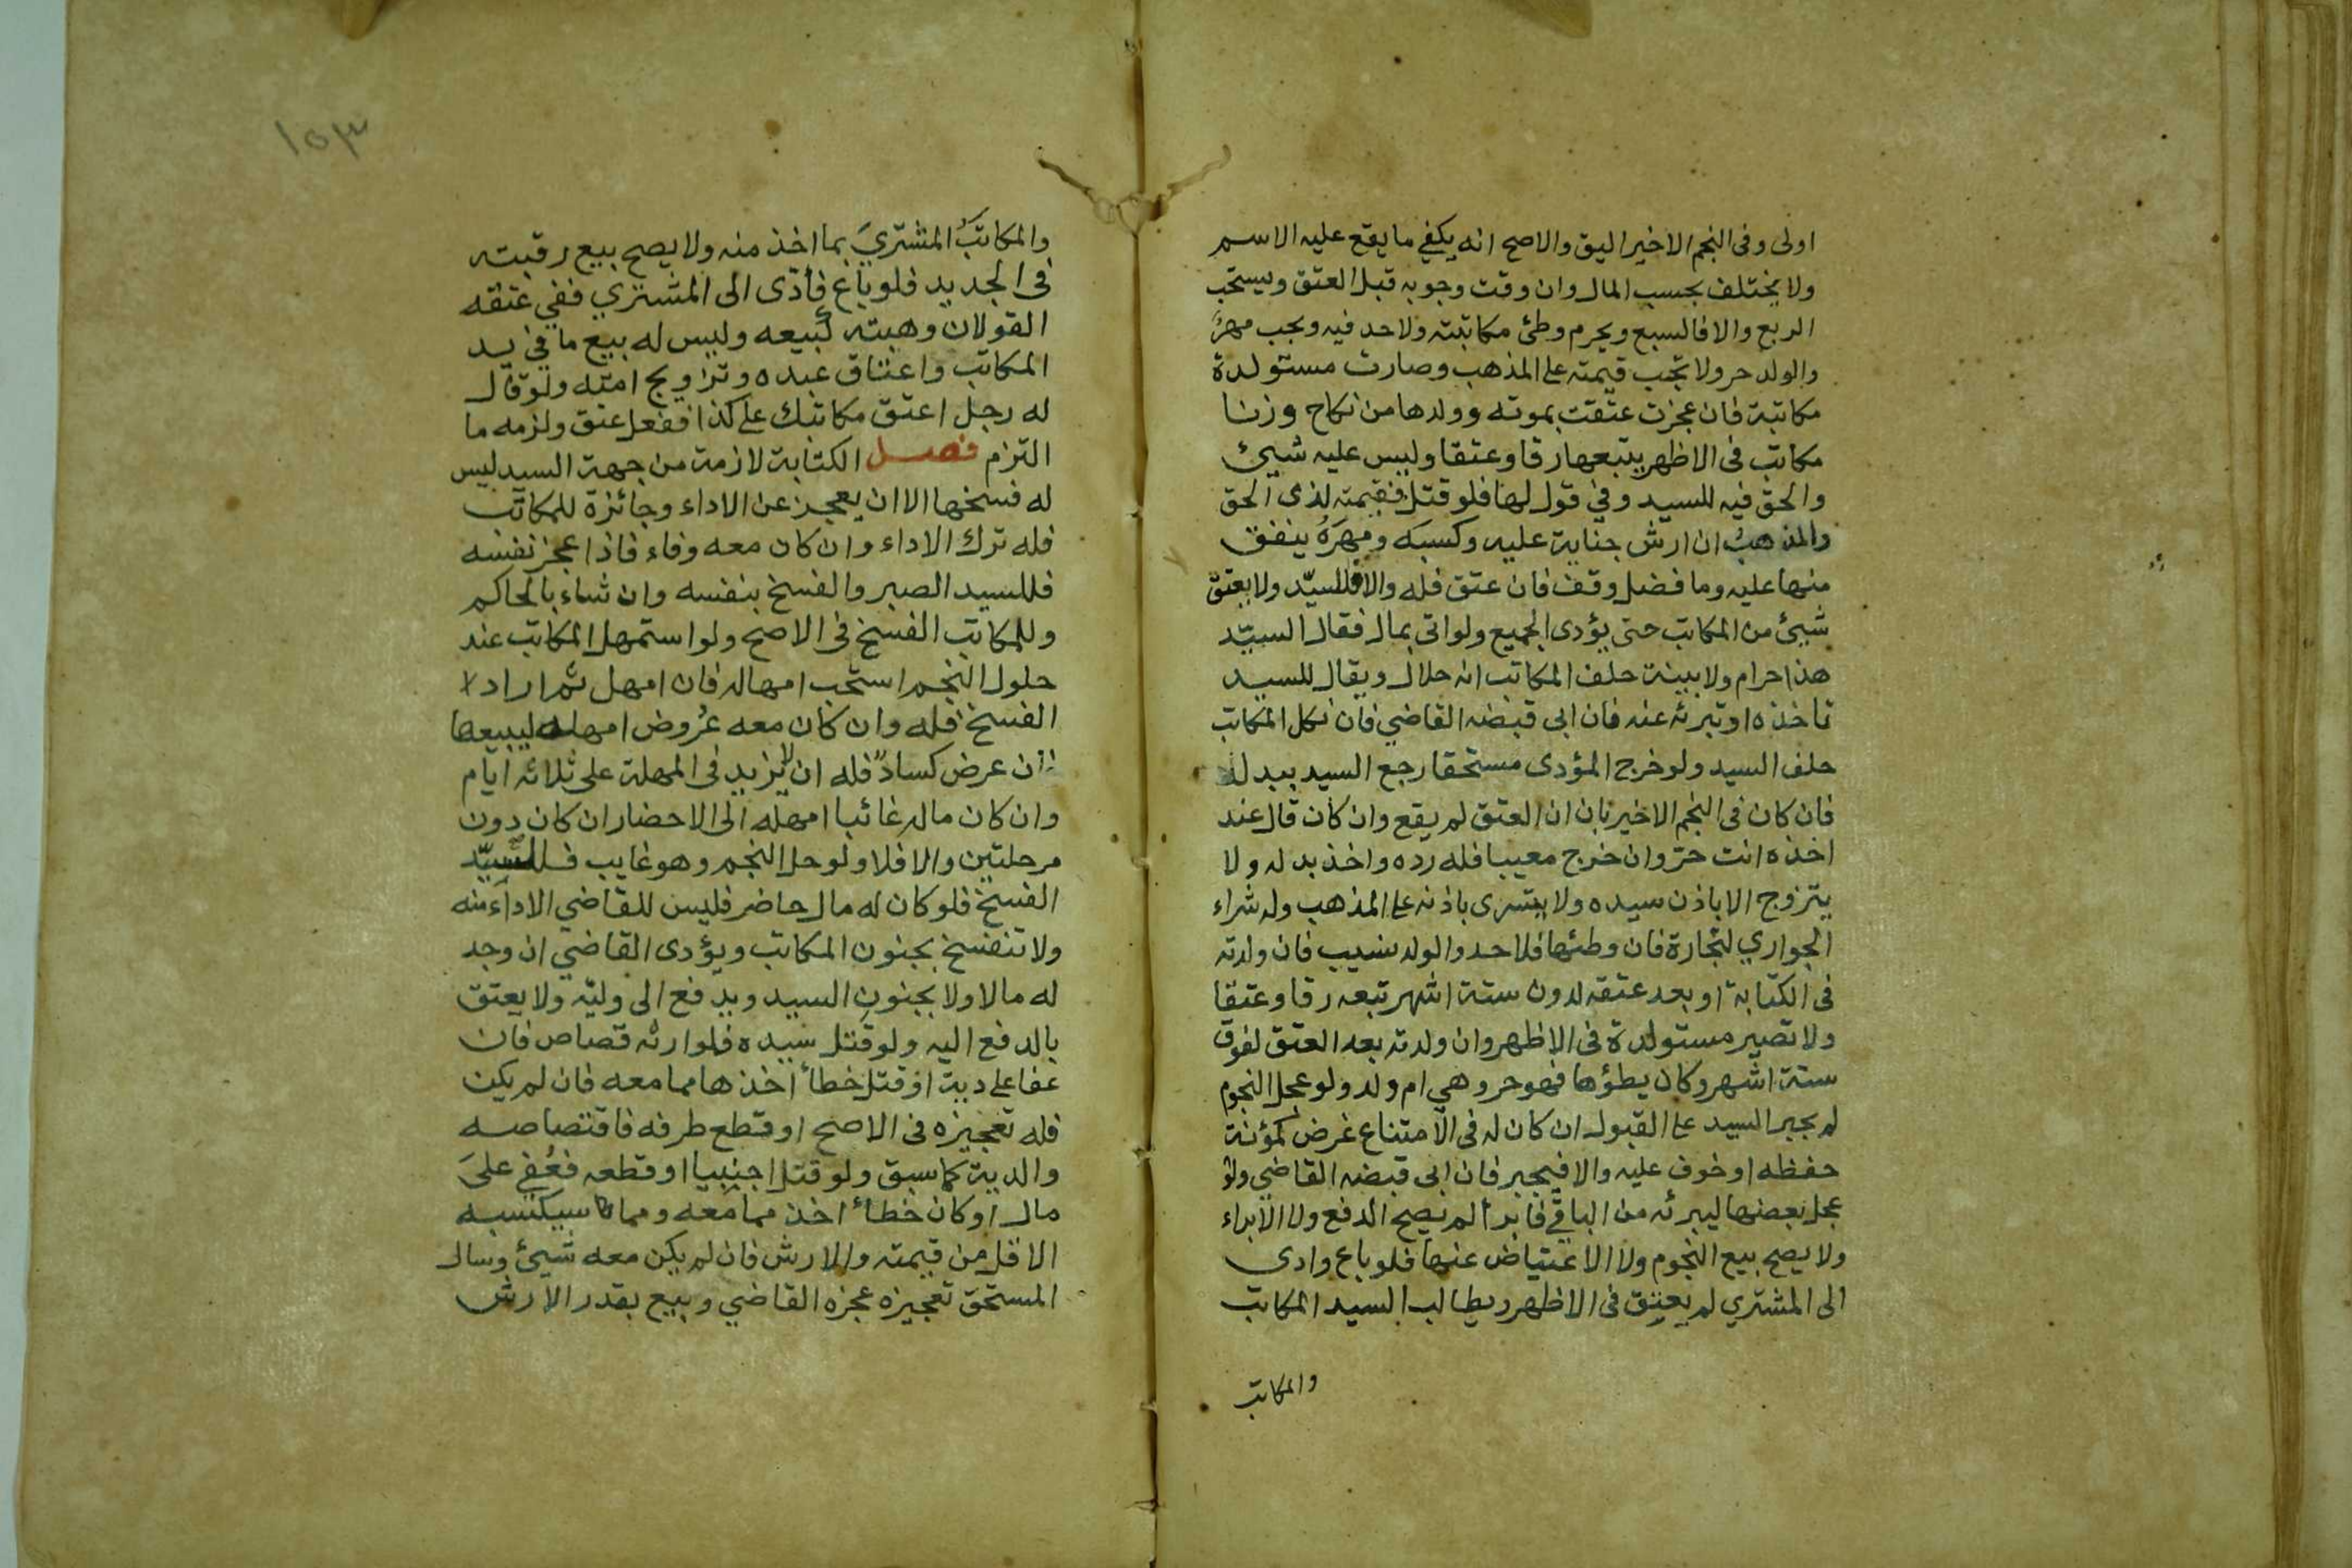 اولى وفى النجم الاخير اليق والاصح انه يكفي ما يقع عليه الاسم
ولا يختلف بحسب المال وان وقت وجوبه قبل العتق ويستحب
الربع والا فالسبع ويحرم وطئ مكاتبته ولا حد فيه ويجب مهرٌ
والولد حر ولا تجب قيمته على المذهب وصارت مستولدة
مكاتبة فان عجزت عتقت بموته وولدها من نكاح وزنا
مكاتب فى الاظهر يتبعها رقا وعتقا وليس عليه شيئ
والحق فيه للسيد وفي قول لها فلو قتل فقيمته لذى الحق
والمذهبُ ان ارش جناية عليه وكسبَه ومهرَهُ ينفق
منها عليه وما فضل وقف فان عتق فله والا فللسيّد ولا يعتق
شيئ من المكاتب حتى يؤدى الجميع ولو اتى بمال فقال السيّد
هذا حرام ولا بينة حلف المكاتب انه حلال ويقال للسيد
تاخذه او تبرئه عنه فان ابى قبضه القاضي فان نكل المكاتب
حلف السيد ولو خرج المؤدى مستحقا رجع السيد ببدله
فان كان فى النجم الاخير بان ان العتق لم يقع وان كان قال عند
اخذه انت حرّ وان خرج معيبا فله رده واخذ بدله ولا
يتزوج الا باذن سيده ولا يتسرى باذنه على المذهب وله شراء
الجواري لتجارة فان وطئها فلا حد والولد نسيب فان ولدته
فى الكتابة او بعد عتقه لدون ستة اشهر تبعه رقا وعتقا
ولا تصير مستولدة فى الاظهر وان ولدته بعد العتق لفوق
ستة اشهر وكان يطؤها فهو حر وهي ام ولد ولو عجل النجوم
لم يجبر السيد على القبول ان كان له فى الامتناع غرض كمؤنة
حفظه او خوف عليه والا فيجبر فان ابى قبضه القاضي ولو
عجل بعضها ليبرئه من الباقي فابرأ لم يصح الدفع ولا الابراء
ولا يصح بيع النجوم ولا الاعتياض عنها فلو باع وادى
الى المشتري لم يعتق فى الاظهر ويطالب السيد المكاتب
والمكاتب
١٥٣
والمكاتبُ المشتريَ بما اخذ منه ولا يصح بيع رقبته
فى الجديد فلو باع فأدّى الى المشتري ففي عتقه
القولان وهبته كبيعه وليس له بيع ما في يد
المكاتب واعتاق عبده وتزاويج امته ولو قال
له رجل اعتق مكاتبك على كذا ففعل عتق ولزمه ما
التزم فصل الكتابة لازمة من جهة السيد ليس
له فسخها الا ان يعجز عن الاداء وجائزة للمكاتب
فله ترك الاداء وان كان معه وفاء فاذا عجز نفسه
فللسيد الصبر والفسخ بنفسه وان شاء بالحاكم
وللمكاتب الفسخ فى الاصح ولو استمهل المكاتب عند
حلول النجم استحب امهاله فان امهل ثم اراد
الفسخ فله وان كان معه عُروض امهله ليبيعها
فان عرض كسادٌ فله ان لا يزيد فى المهلة على ثلاثة ايام
وان كان ماله غائبا امهله الى الاحضار ان كان دون
مرحلتين والا فلا ولو حل النجم وهو غايب فللسيّد
الفسخ فلو كان له مال حاضر فليس للقاضي الاداء منه
ولا تنفسخ بجنون المكاتب ويؤدى القاضي ان وجد
له مالا ولا بجنون السيد ويدفع الى وليّه ولا يعتق
بالدفع اليه ولو قتل سيده فلوارثه قصاص فان
عفا على دية او قتل خطأ اخذها مما معه فان لم يكن
فله تعجيزه فى الاصح او قطع طرفه فاقتصاصه
والدية كما سبق ولو قتل اجنبيا او قطعه فعُفي على
مال او كان خطأ اخذ مما معه ومما سيكسبه
الاقل من قيمته والارش فان لم يكن معه شيئ وسال
المستحق تعجيزه عجزه القاضي وبيع بقدر الارش